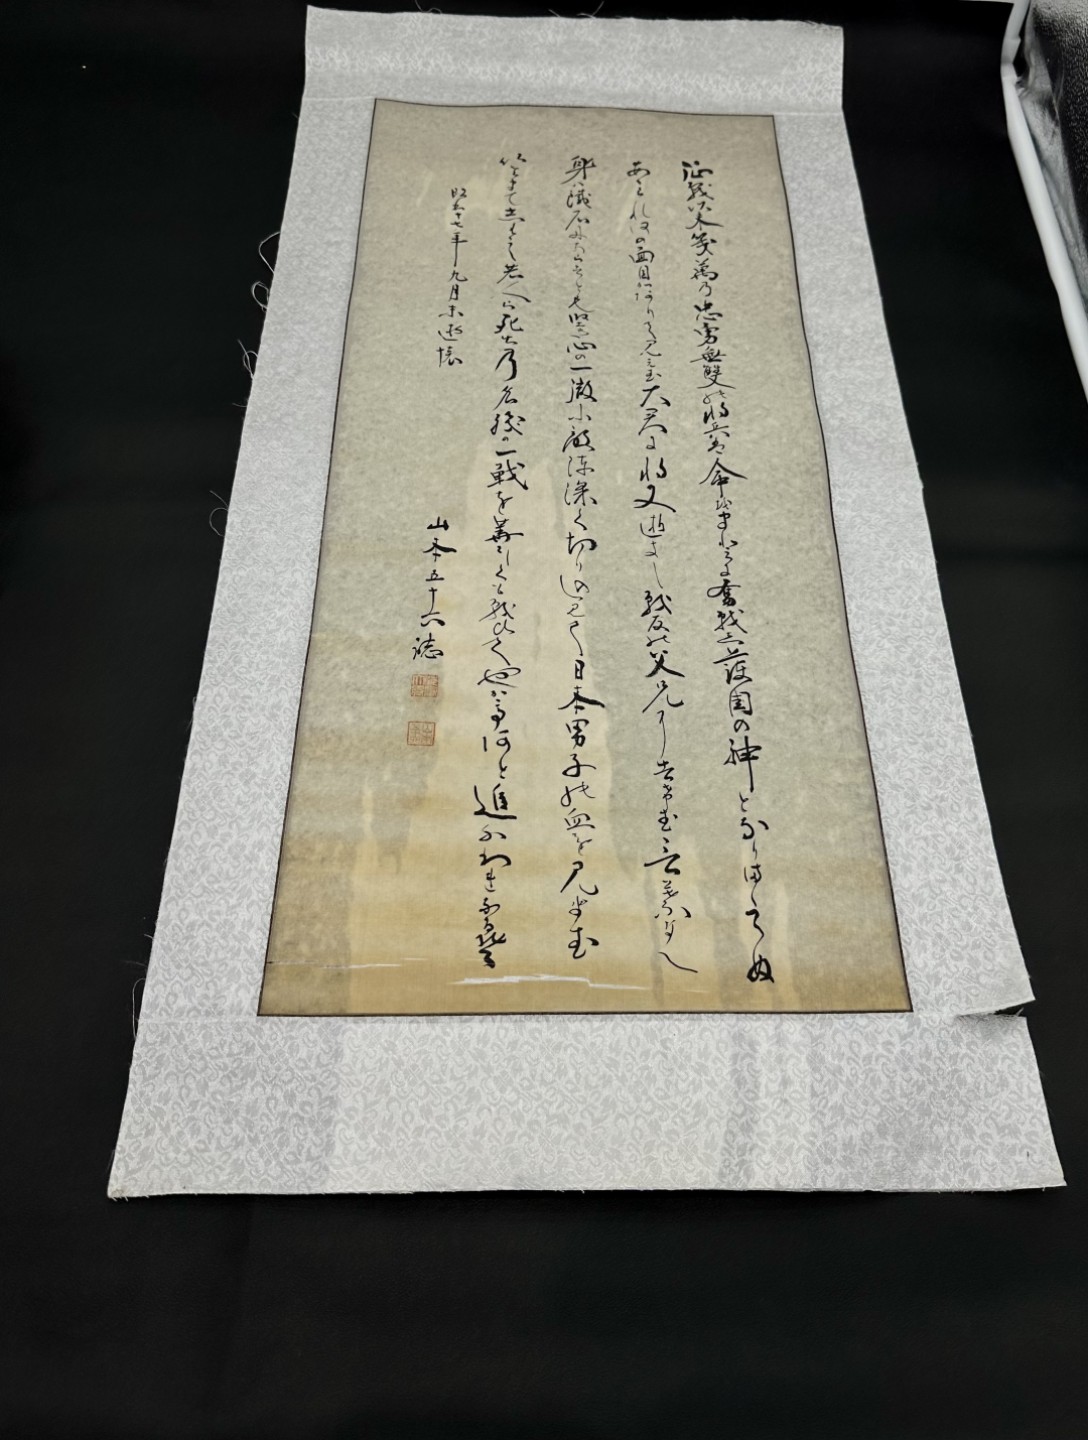 征戦以来幾萬乃忠勇無雙の将兵は命をまとに奮戦し護国の神となりましぬ
あゝ我何の面目ありて見え無大君に将又逝きし戦友の父兄に告け無言葉なし
身は鐵石にあらすとも堅心の一徹に敵陣深く切り込みて日本男子の血を見せ無
いさまてしはし若人ら死出乃名残の一戦を華々しくも戦ひてやかてあと追ふわれなる楚
昭和十七年九月末述懐
山本五十六誌